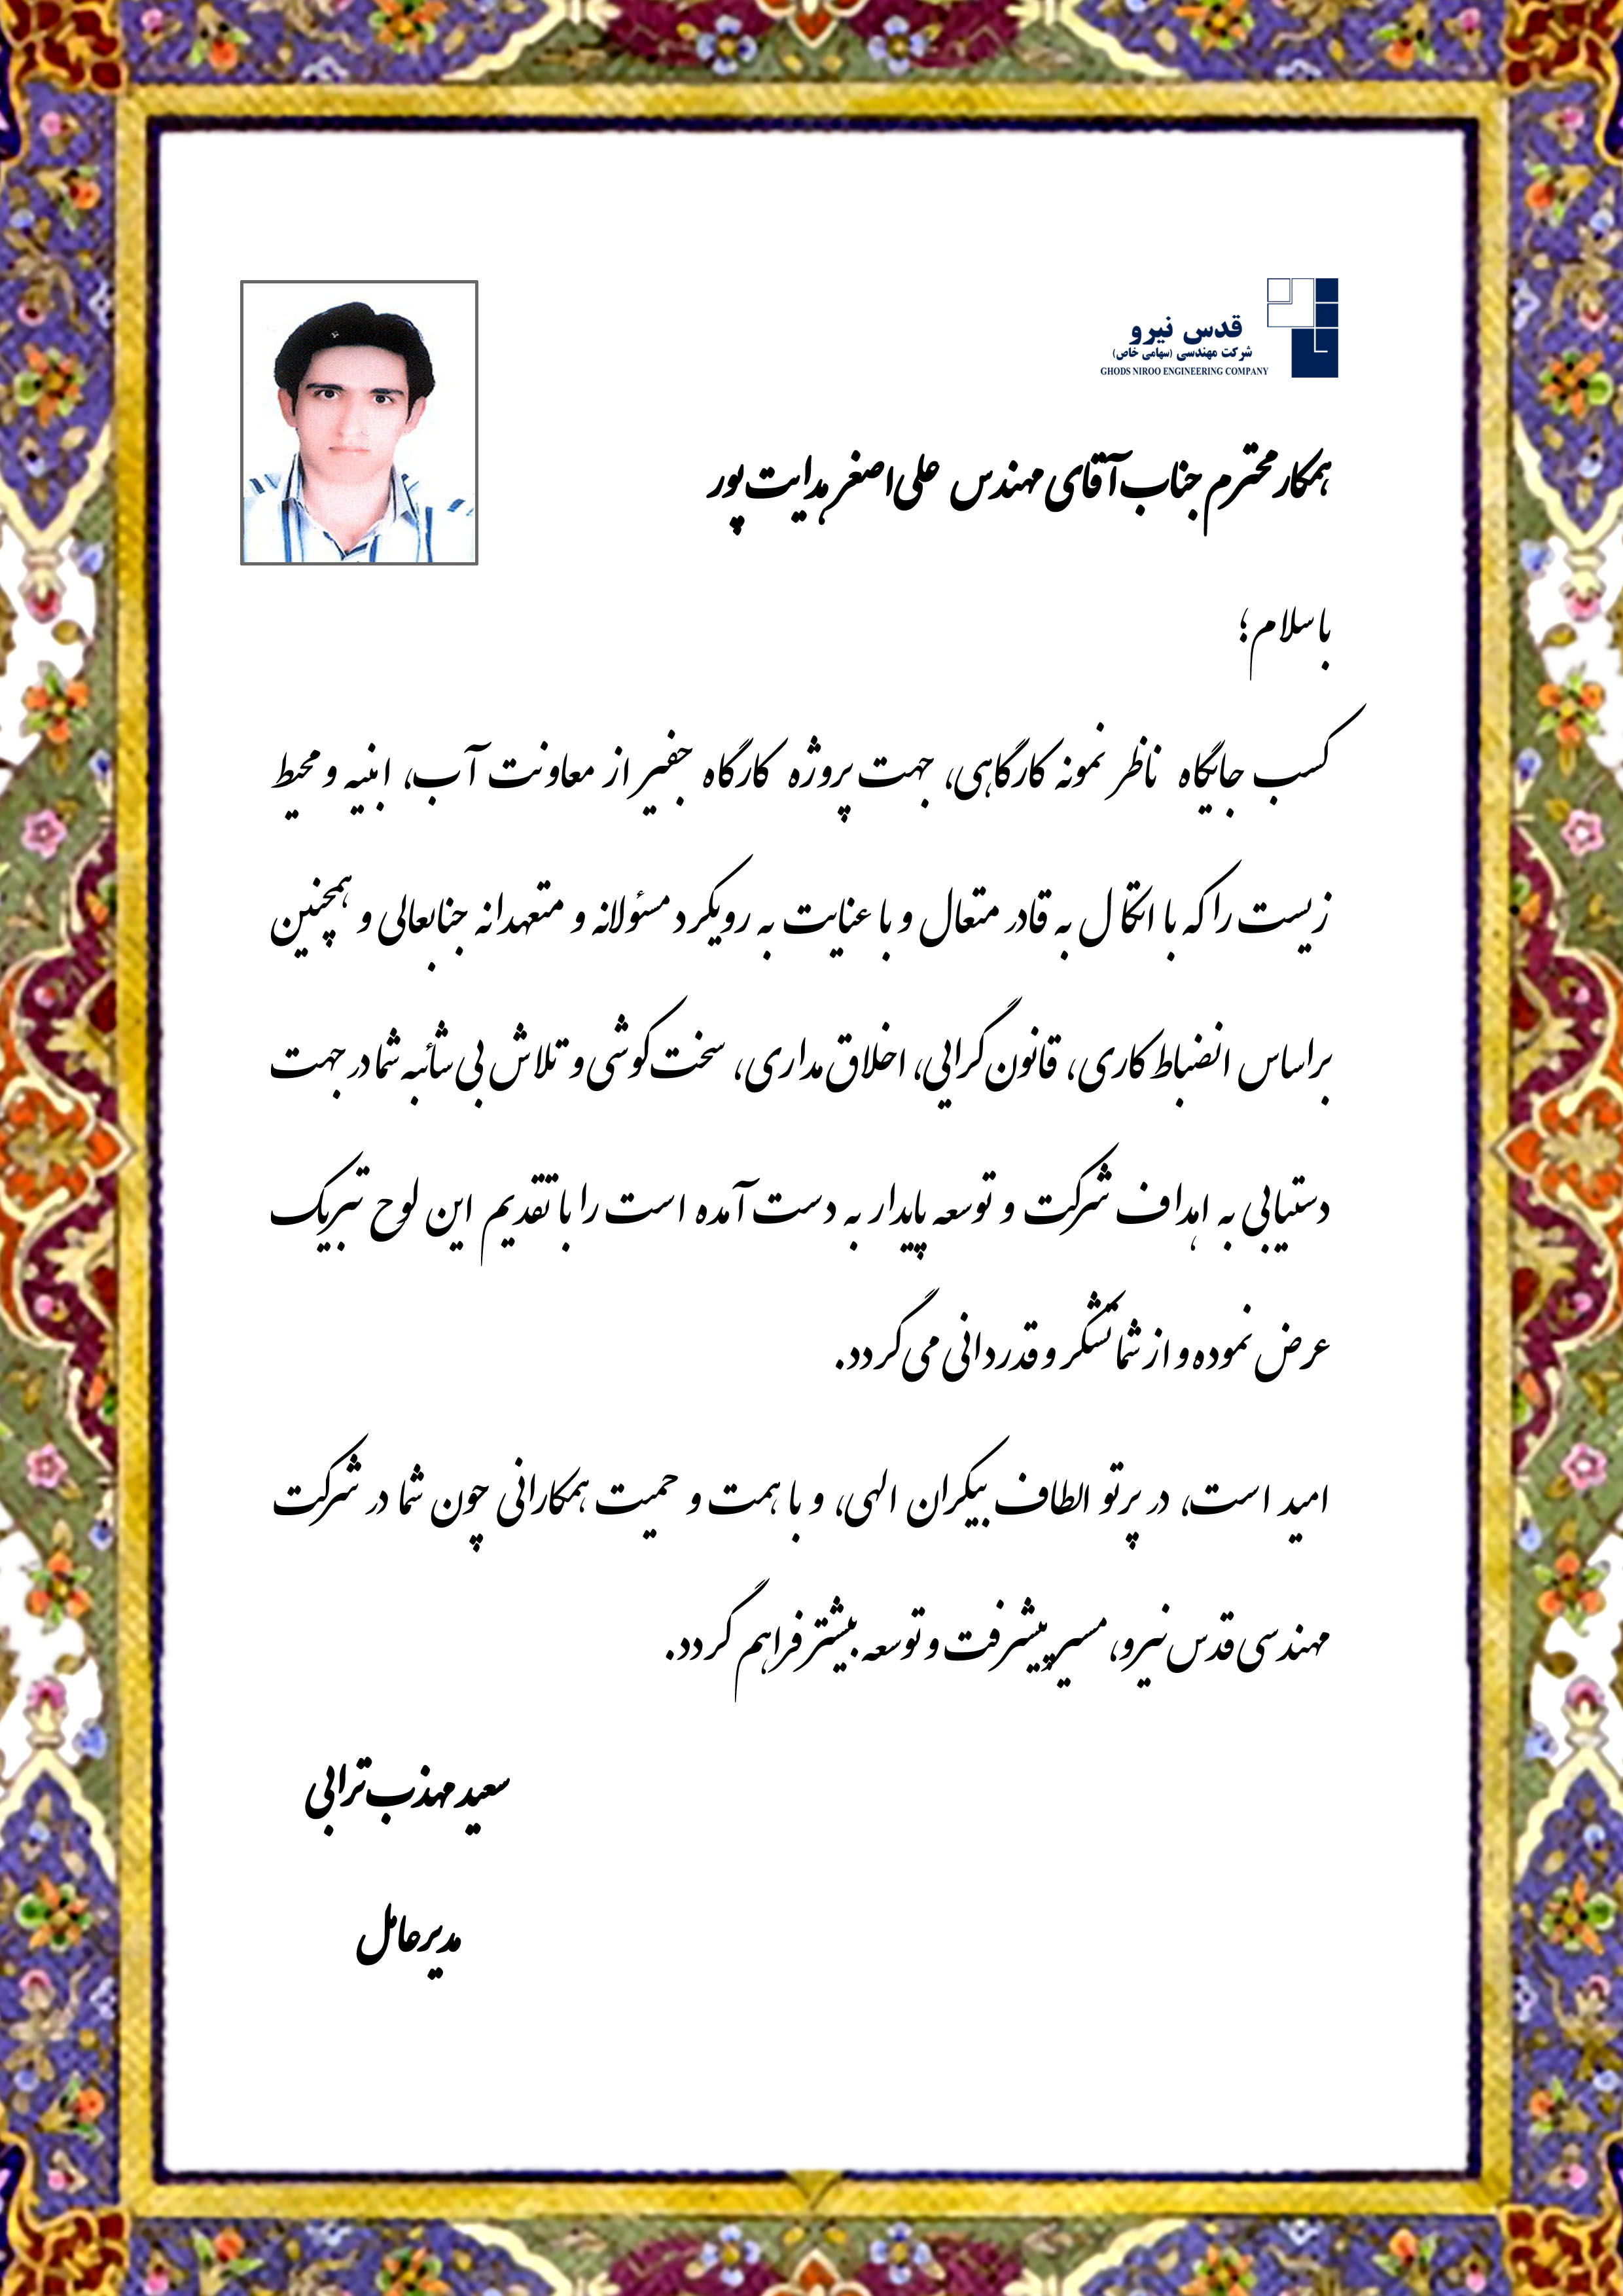 قدس نیرو
شرکت مهندسی (سهامی خاص)
GHODS NIROO ENGINEERING COMPANY
همکار محترم جناب آقای مهندس علی اصغر هدایت پور
با سلام؛
کسب جایگاه ناظر نمونه کارگاهی، جهت پروژه کارگاه جفیر از معاونت آب، ابنیه و محیط
زیست را که با اتکال به قادر متعال و با عنایت به رویکرد مسئولانه و متعهدانه جنابعالی و همچنین
براساس انضباط کاری، قانون گرایی، اخلاق مداری، سخت کوشی و تلاش بی شائبه شما در جهت
دستیابی به اهداف شرکت و توسعه پایدار به دست آمده است را با تقدیم این لوح تبریک
عرض نموده و از شما تشکر و قدردانی می گردد.
امید است، در پرتو الطاف بیکران الهی، و با همت و حمیت همکارانی چون شما در شرکت
مهندسی قدس نیرو، مسیر پیشرفت و توسعه بیشتر فراهم گردد.
سعید مهذب ترابی
مدیرعامل